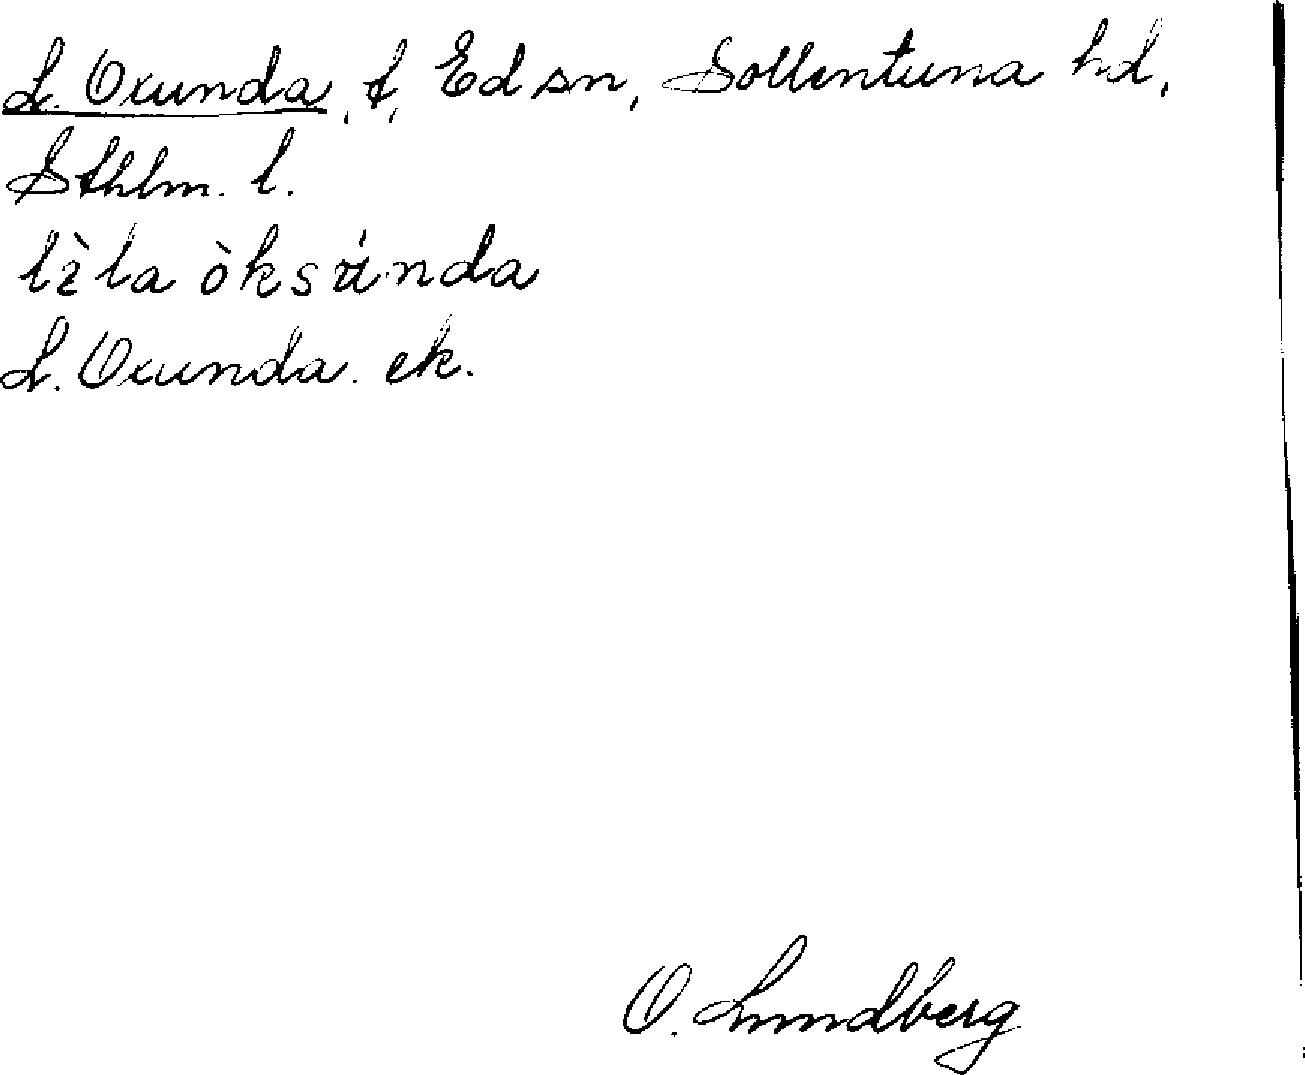 L. Oxunda, f, Ed sn, Sollentuna hd,
Sthlm. l.
lìla òksúnda
L. Oxunda. ek.
O. Lundberg